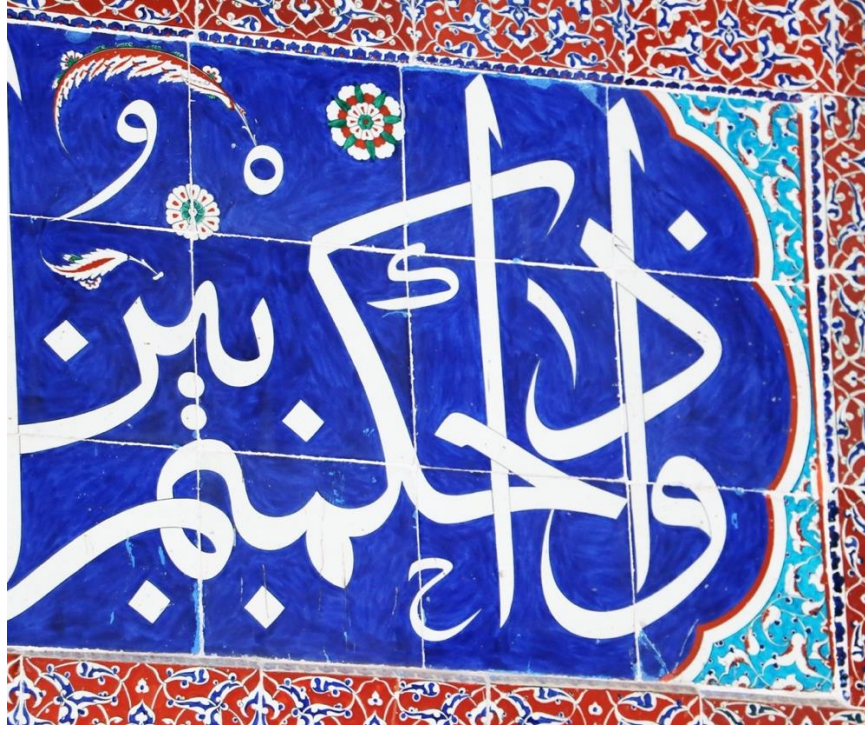 واذا حكمتم بين